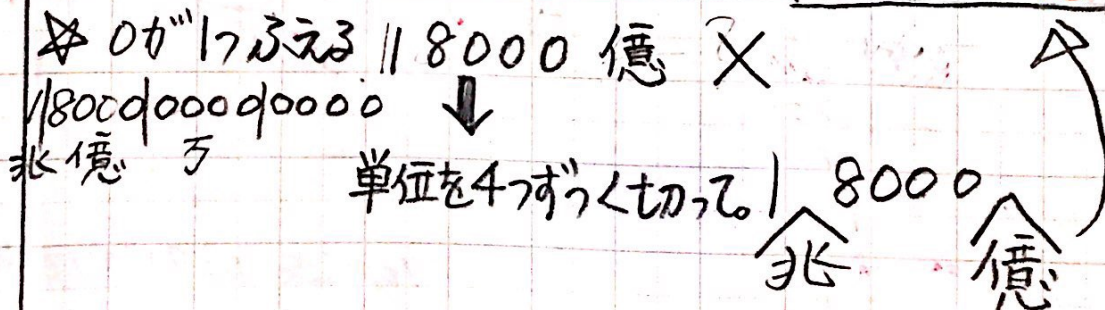 ☆ 0が1つふえる 118000億 ×
1|8000|0000|0000
兆 億 万
↓
単位を4つずつくぎって。1 8000
兆 億